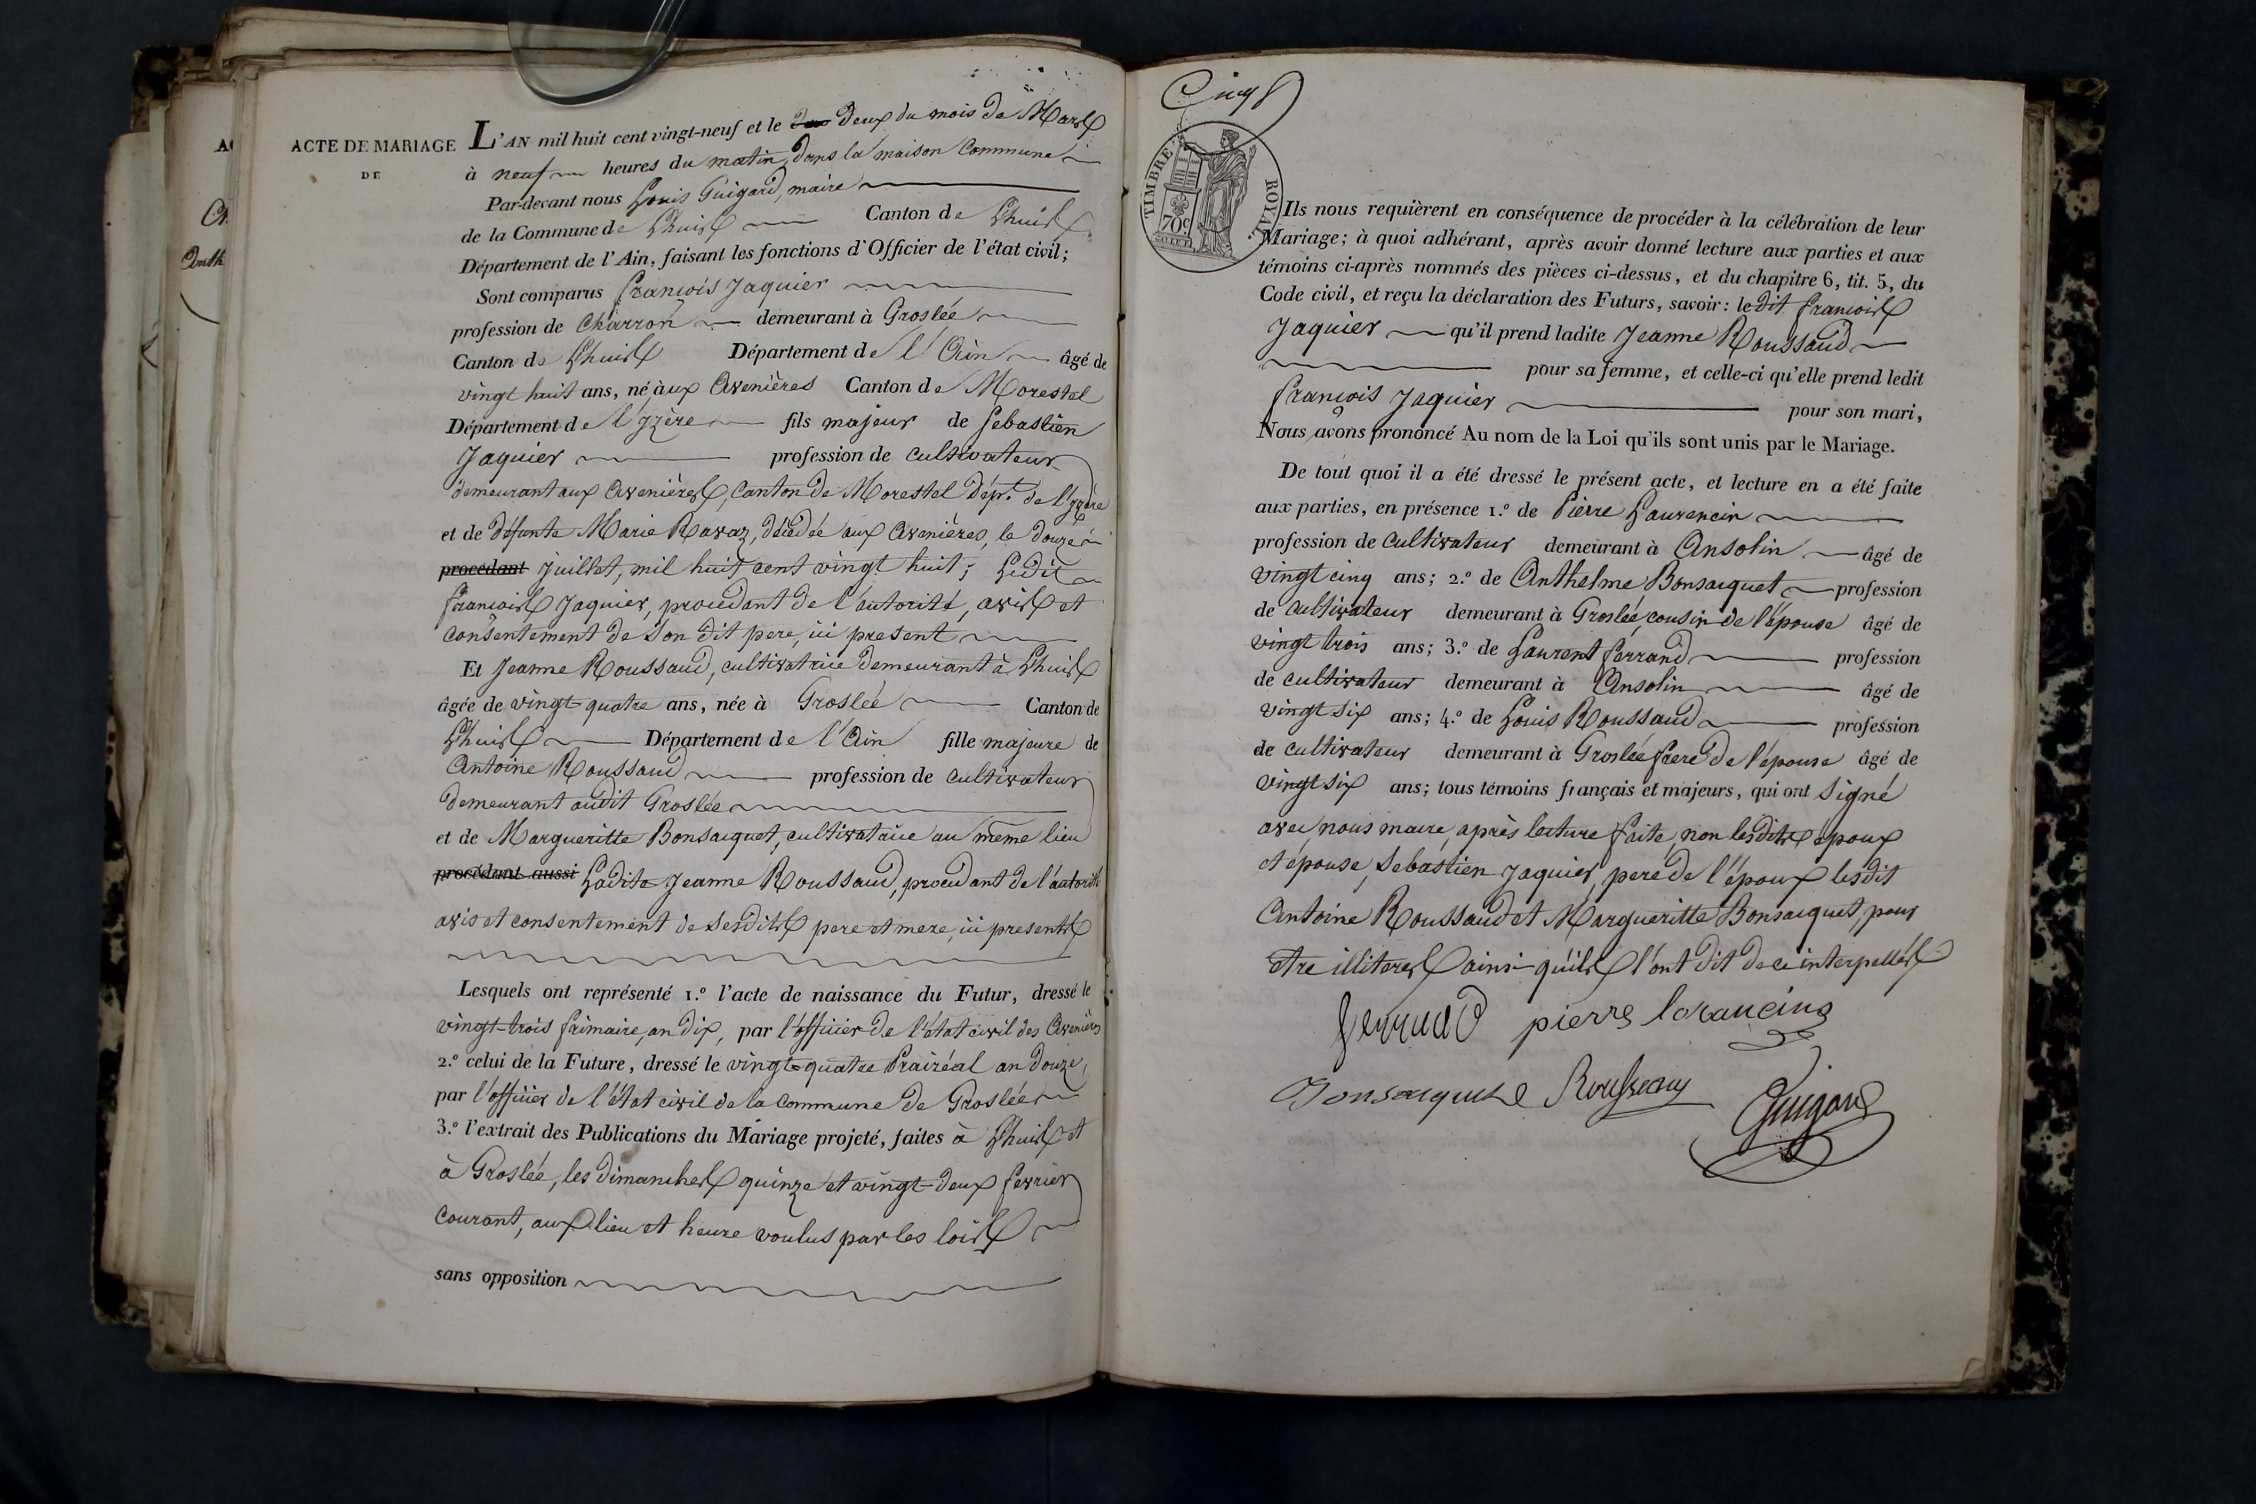 ACTE DE MARIAGE
DE
L'AN mil huit cent vingt-neuf et le deux du mois de Mars
à neuf heures du matin, dans la maison Commune
Par-devant nous Louis Guigard, maire
de la Commune de Lhuis Canton de Lhuis
Département de l'Ain, faisant les fonctions d'Officier de l'état civil;
Sont comparus francois Jaquier
profession de Charron demeurant à Groslée
Canton de Lhuis Département de l'Ain âgé de
vingt huit ans, né àux Avenières Canton de Morestel
Département de l'Yzère fils majeur de Sebastien
Jaquier profession de cultivateur
demeurant aux Avenières, Canton de Morestel dépt. de l'Yzère
et de défunte Marie Ravaz, décédée aux Avenières, le douze
procédant juillet, mil huit cent vingt huit; Ledit
francois Jaquier, procedant de l'autorité, avis et
consentement de son dit pere, ici present
Et Jeanne Roussaud, cultivatrice demeurant à Lhuis
âgée de vingt-quatre ans, née à Groslée Canton de
Lhuis Département de l'Ain fille majeure de
Antoine Roussaud profession de cultivateur
demeurant audit Groslée
et de Margueritte Bonsacquet, cultivatrice au même lieu
procédant aussi Ladite Jeanne Roussaud, procedant de l'autorité
avis et consentement de sesdits pere et mere, ici presents
Lesquels ont représenté 1.º l'acte de naissance du Futur, dressé le
vingt-trois frimaire, an dix, par l'officier de l'état civil des Avenières
2.º celui de la Future, dressé le vingt-quatre Prairéal an douze,
par l'officier de l'état civil de la commune de Groslée
3.º l'extrait des Publications du Mariage projeté, faites à Lhuis et
à Groslée, les dimanches quinze et vingt-deux fevrier
courant, aux lieu et heure voulus par les lois
sans opposition
Cinq
TIMBRE ROYAL
70c
Ils nous requièrent en conséquence de procéder à la célébration de leur
Mariage; à quoi adhérant, après avoir donné lecture aux parties et aux
témoins ci-après nommés des pièces ci-dessus, et du chapitre 6, tit. 5, du
Code civil, et reçu la déclaration des Futurs, savoir: ledit francois
Jaquier qu'il prend ladite Jeanne Roussaud
pour sa femme, et celle-ci qu'elle prend ledit
françois Jaquier pour son mari,
Nous avons prononcé Au nom de la Loi qu'ils sont unis par le Mariage.
De tout quoi il a été dressé le présent acte, et lecture en a été faite
aux parties, en présence 1.º de Pierre Laurencin
profession de cultivateur demeurant à Ansolin âgé de
vingt cinq ans; 2.º de Anthelme Bonsacquet profession
de cultivateur demeurant à Groslée, cousin de l'épouse âgé de
vingt trois ans; 3.º de Laurent ferrand profession
de cultivateur demeurant à Ansolin âgé de
vingt six ans; 4.º de Louis Roussaud profession
de cultivateur demeurant à Groslée frere de l'épouse âgé de
vingt six ans; tous témoins français et majeurs, qui ont signé
avec nous maire, après lecture faite, non lesdits époux
et épouse, Sebastien Jaquier, pere de l'époux lesdit
Antoine Roussaud et Margueritte Bonsacquet, pour
etre illiterés ainsi qu'ils l'ont dit de ce interpellés
ferrand pierre lorancing
Bonsacquet Rousseau
Guigard